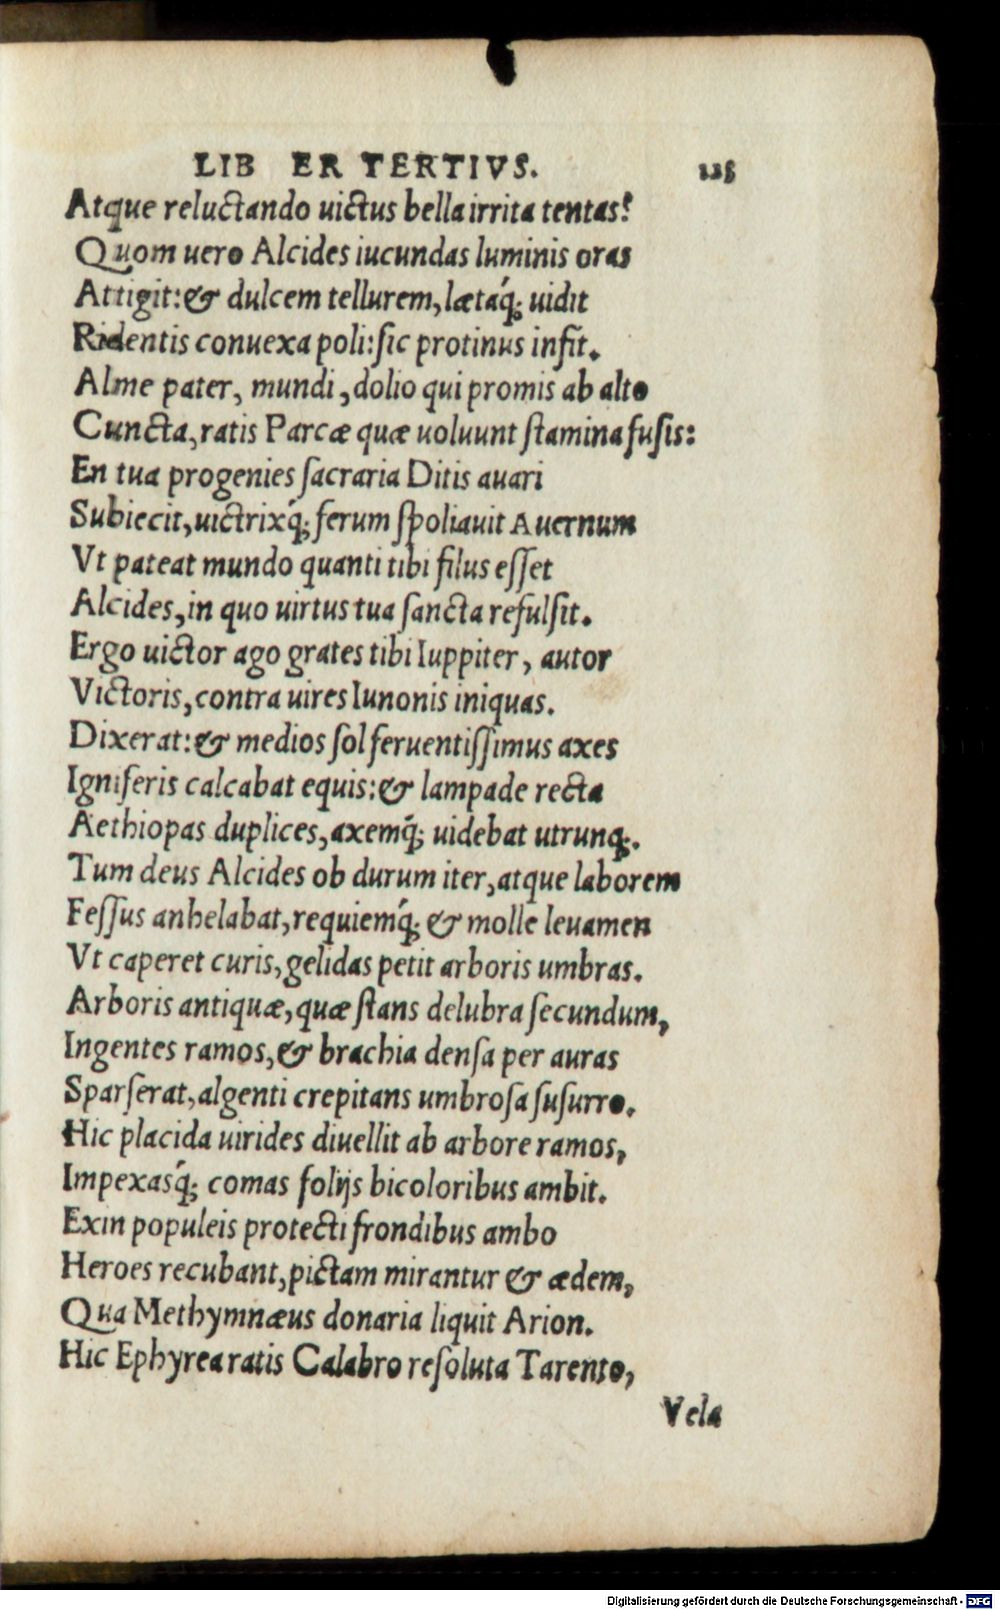 LIB ER TERTIVS. 125
Atque reluctando uictus bella irrita tentas?
Quom uero Alcides iucundas luminis oras
Attigit: & dulcem tellurem, lætáq; uidit
Ridentis conuexa poli: sic protinus infit.
Alme pater, mundi, dolio qui promis ab alto
Cuncta, ratis Parcæ quæ uoluunt stamina fusis:
En tua progenies sacraria Ditis auari
Subiecit, uictrixq́; ferum spoliauit Auernum
Vt pateat mundo quanti tibi filus esset
Alcides, in quo uirtus tua sancta refulsit.
Ergo uictor ago grates tibi Iuppiter, autor
Victoris, contra uires Iunonis iniquas.
Dixerat: & medios sol feruentissimus axes
Igniferis calcabat equis: & lampade recta
Aethiopas duplices, axemq́; uidebat utrunq;.
Tum deus Alcides ob durum iter, atque laborem
Fessus anhelabat, requiemq́; & molle leuamen
Vt caperet curis, gelidas petit arboris umbras.
Arboris antiquæ, quæ stans delubra secundum,
Ingentes ramos, & brachia densa per auras
Sparserat, algenti crepitans umbrosa susurro.
Hic placida uirides diuellit ab arbore ramos,
Impexasq́; comas folijs bicoloribus ambit.
Exin populeis protecti frondibus ambo
Heroes recubant, pictam mirantur & ædem,
Qua Methymnæus donaria liquit Arion.
Hic Ephyrea ratis Calabro resoluta Tarento,
Vela
Digitalisierung gefördert durch die Deutsche Forschungsgemeinschaft - DFG